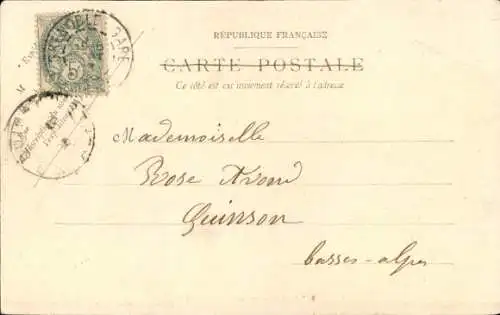 RÉPUBLIQUE FRANÇAISE
CARTE POSTALE
Ce côté est exclusivement réservé à l'adresse
GRENOBLE GARE
5
M
Mademoiselle
Rose
Quinson
basses-alpes